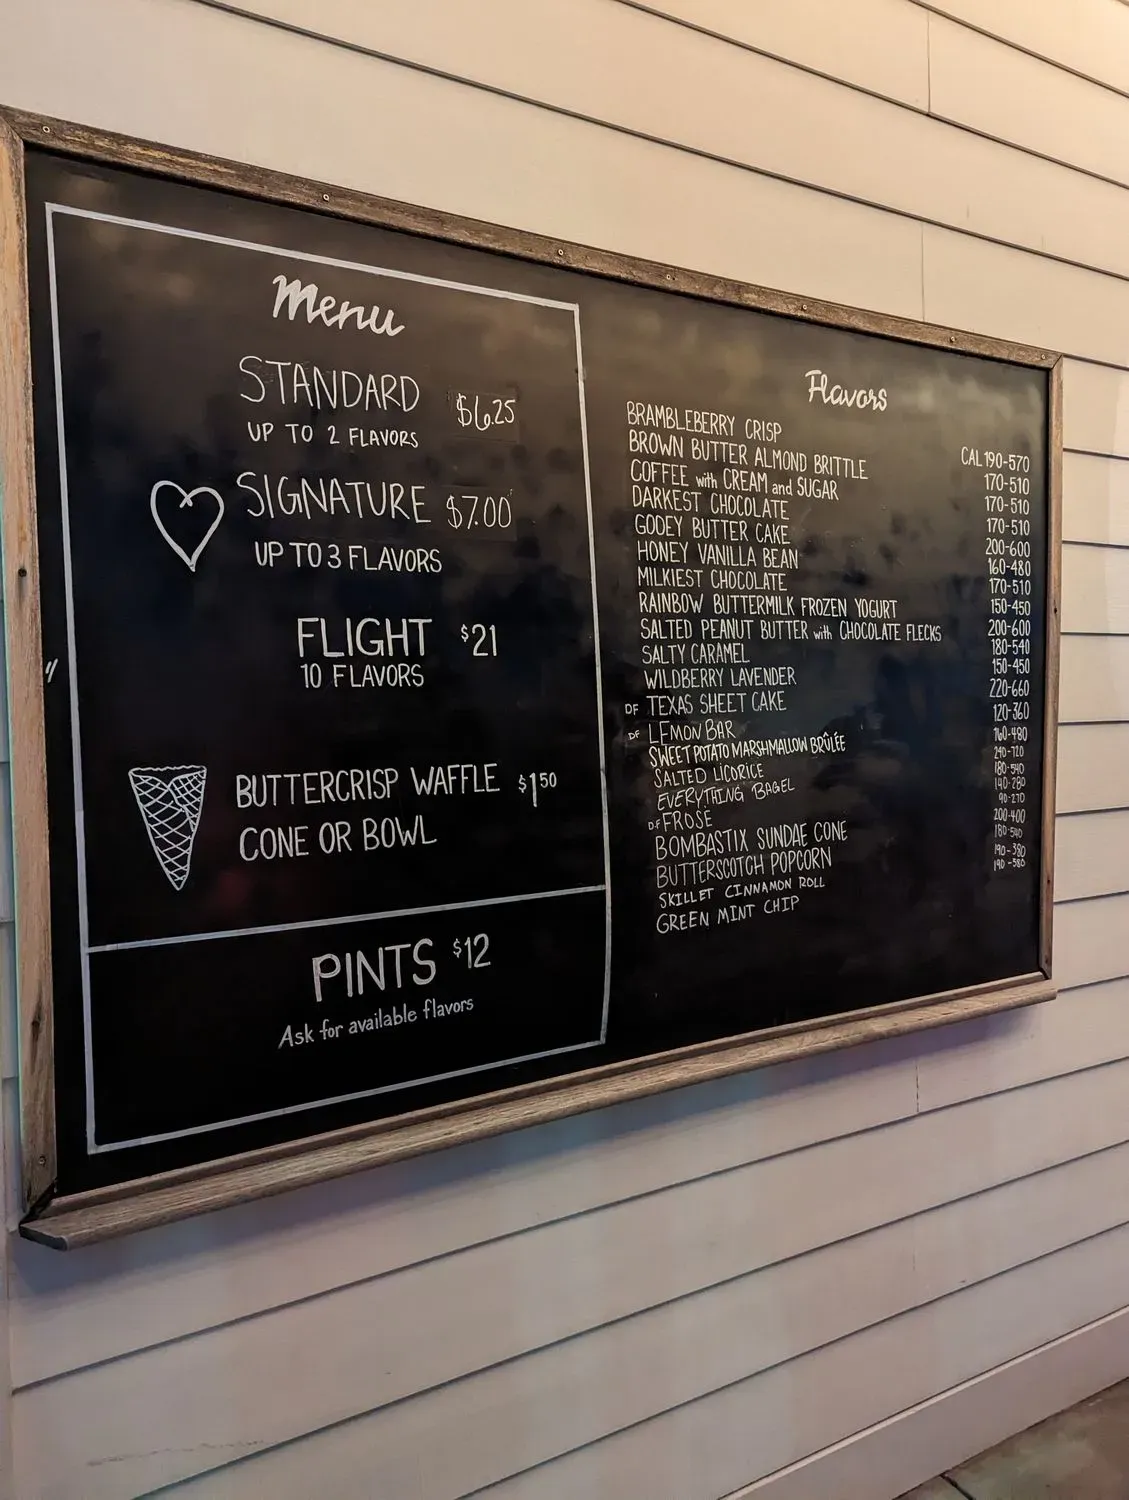 Menu
STANDARD $6.25
UP TO 2 FLAVORS
SIGNATURE $7.00
UP TO 3 FLAVORS
FLIGHT $21
10 FLAVORS
BUTTERCRISP WAFFLE $1 50
CONE OR BOWL
PINTS $12
Ask for available flavors
Flavors
BRAMBLEBERRY CRISP CAL 190-570
BROWN BUTTER ALMOND BRITTLE 170-510
COFFEE with CREAM and SUGAR 170-510
DARKEST CHOCOLATE 170-510
GOOEY BUTTER CAKE 200-600
HONEY VANILLA BEAN 160-480
MILKIEST CHOCOLATE 170-510
RAINBOW BUTTERMILK FROZEN YOGURT 150-450
SALTED PEANUT BUTTER with CHOCOLATE FLECKS 200-600
SALTY CARAMEL 180-540
WILDBERRY LAVENDER 150-450
DF TEXAS SHEET CAKE 220-660
DF LEMON BAR 120-360
SWEET POTATO MARSHMALLOW BRÛLÉE 160-480
SALTED LICORICE 240-720
EVERYTHING BAGEL 180-540
DF FROSÉ 140-280
BOMBASTIX SUNDAE CONE 90-270
BUTTERSCOTCH POPCORN 200-400
SKILLET CINNAMON ROLL 180-540
GREEN MINT CHIP 190-380
190-580